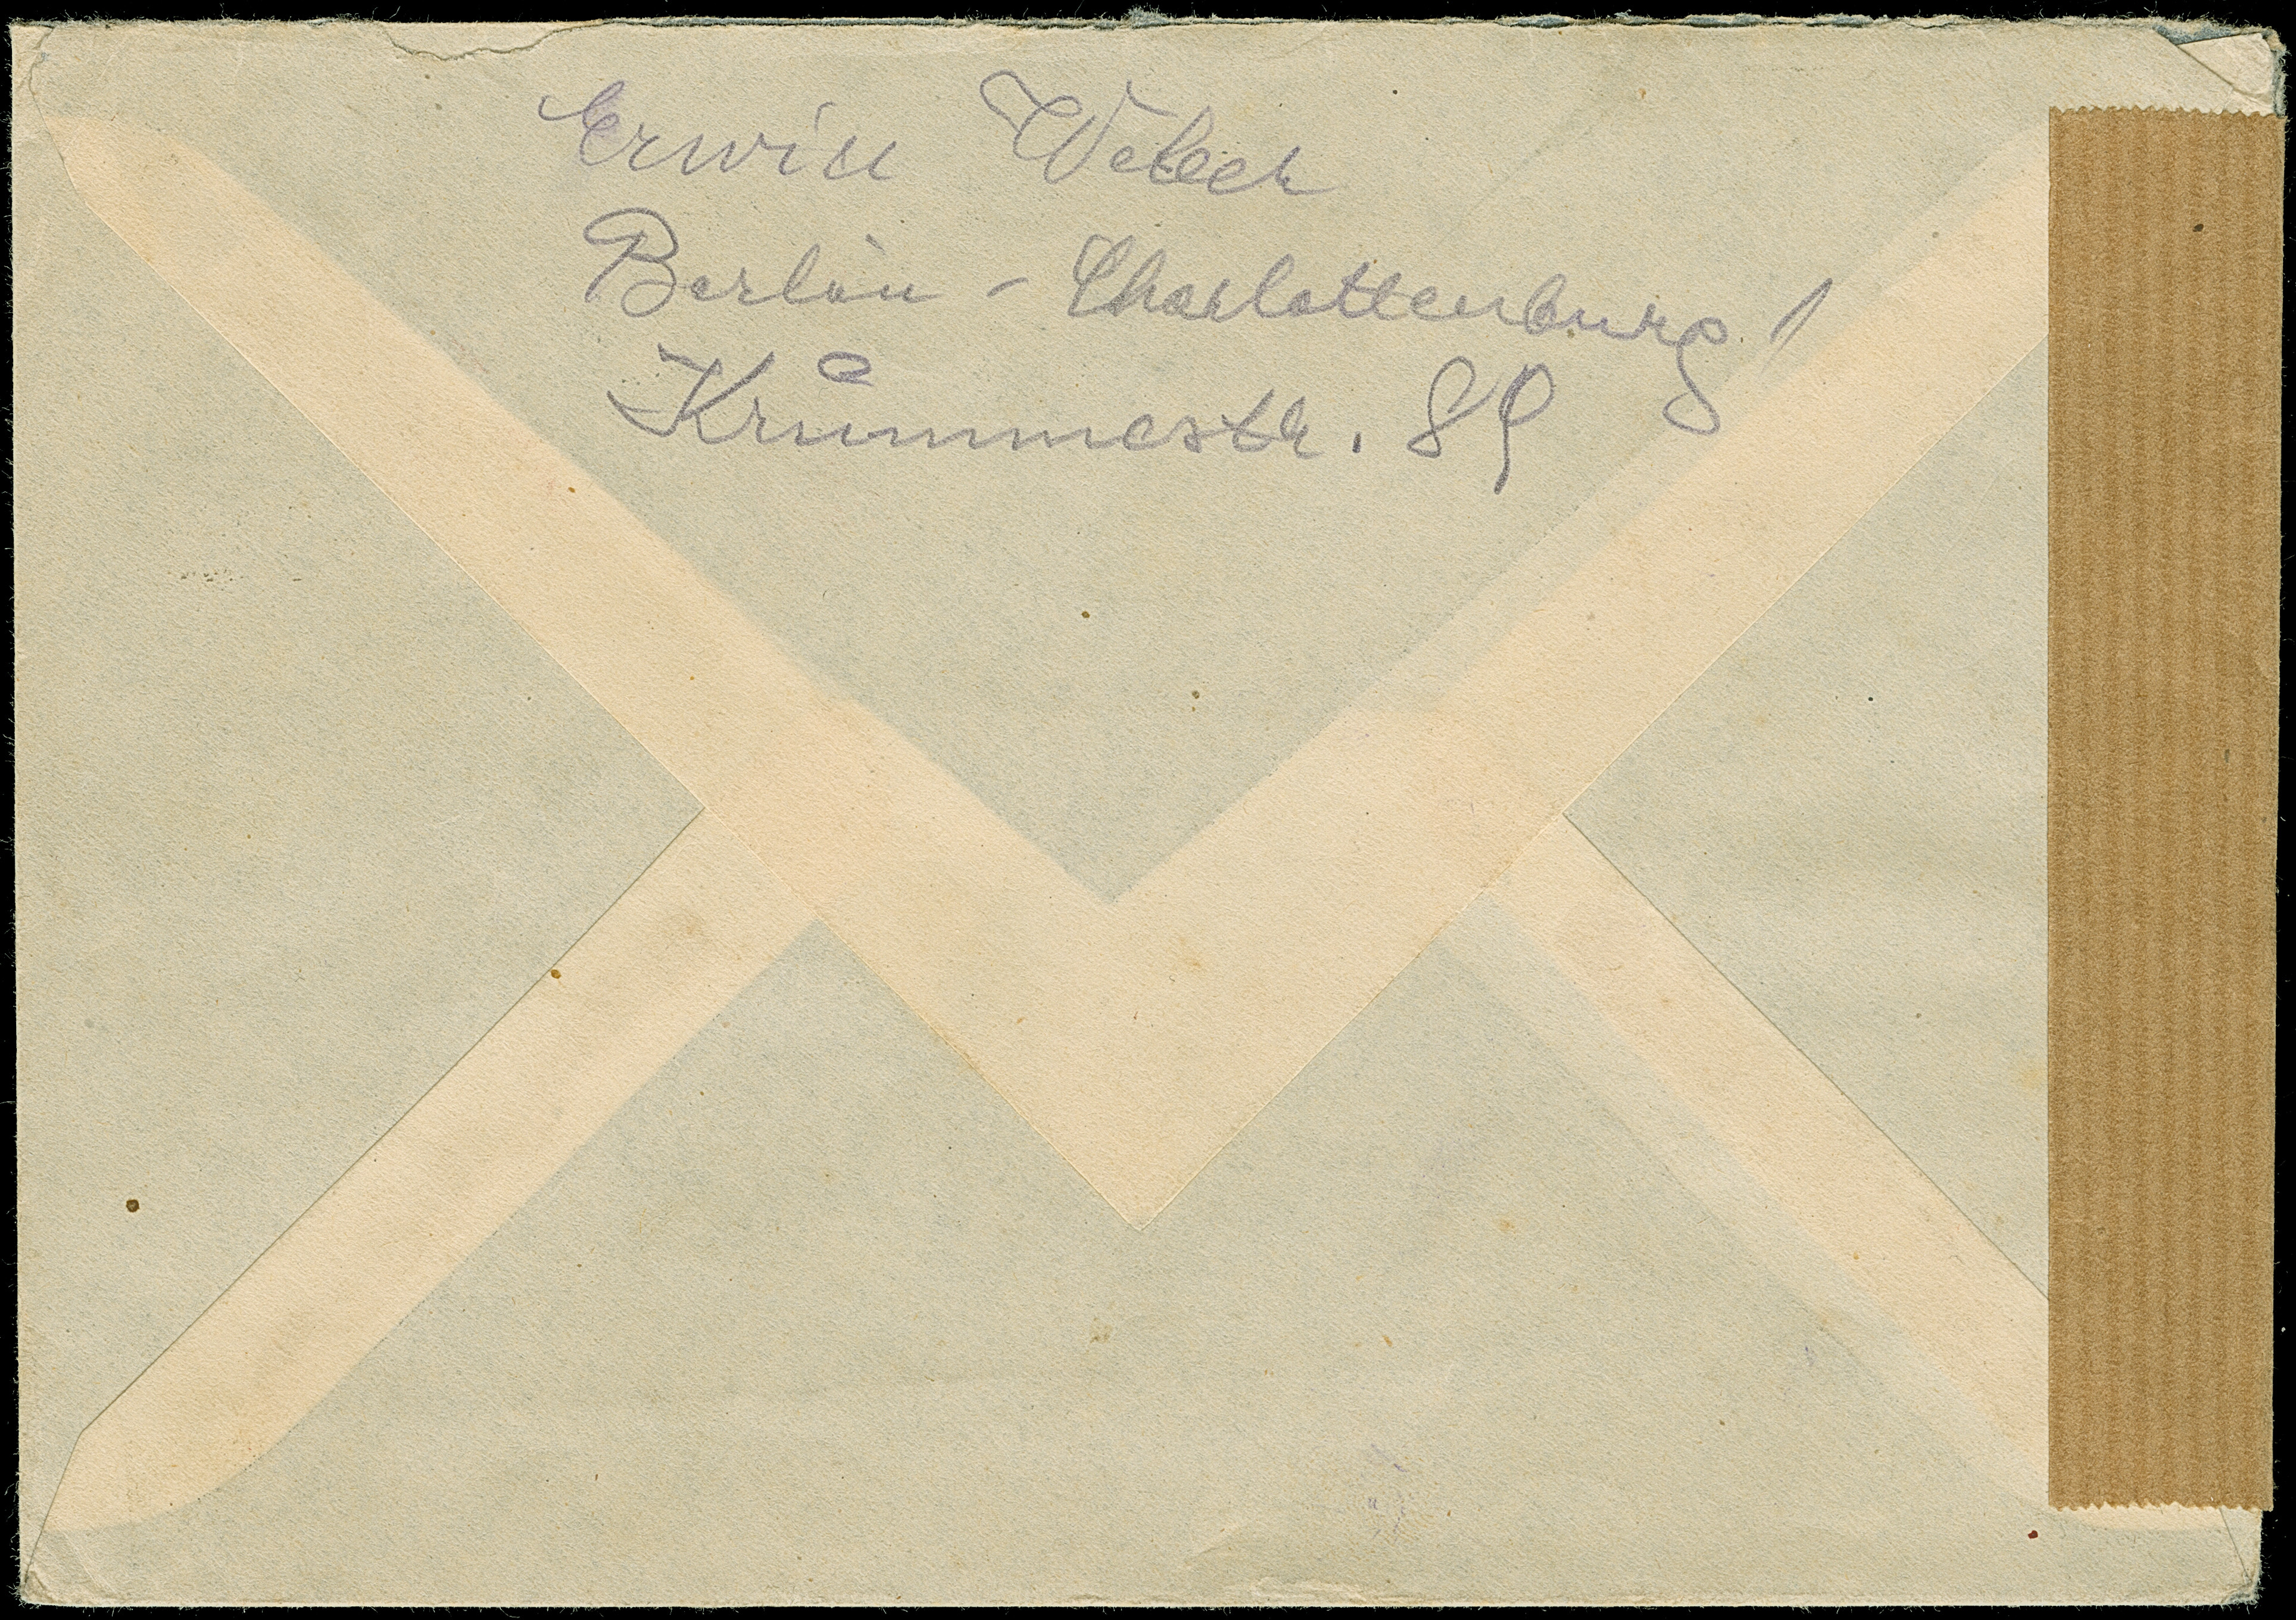 Erwin Weber
Berlin - Charlottenburg 1
Krummestr. 89